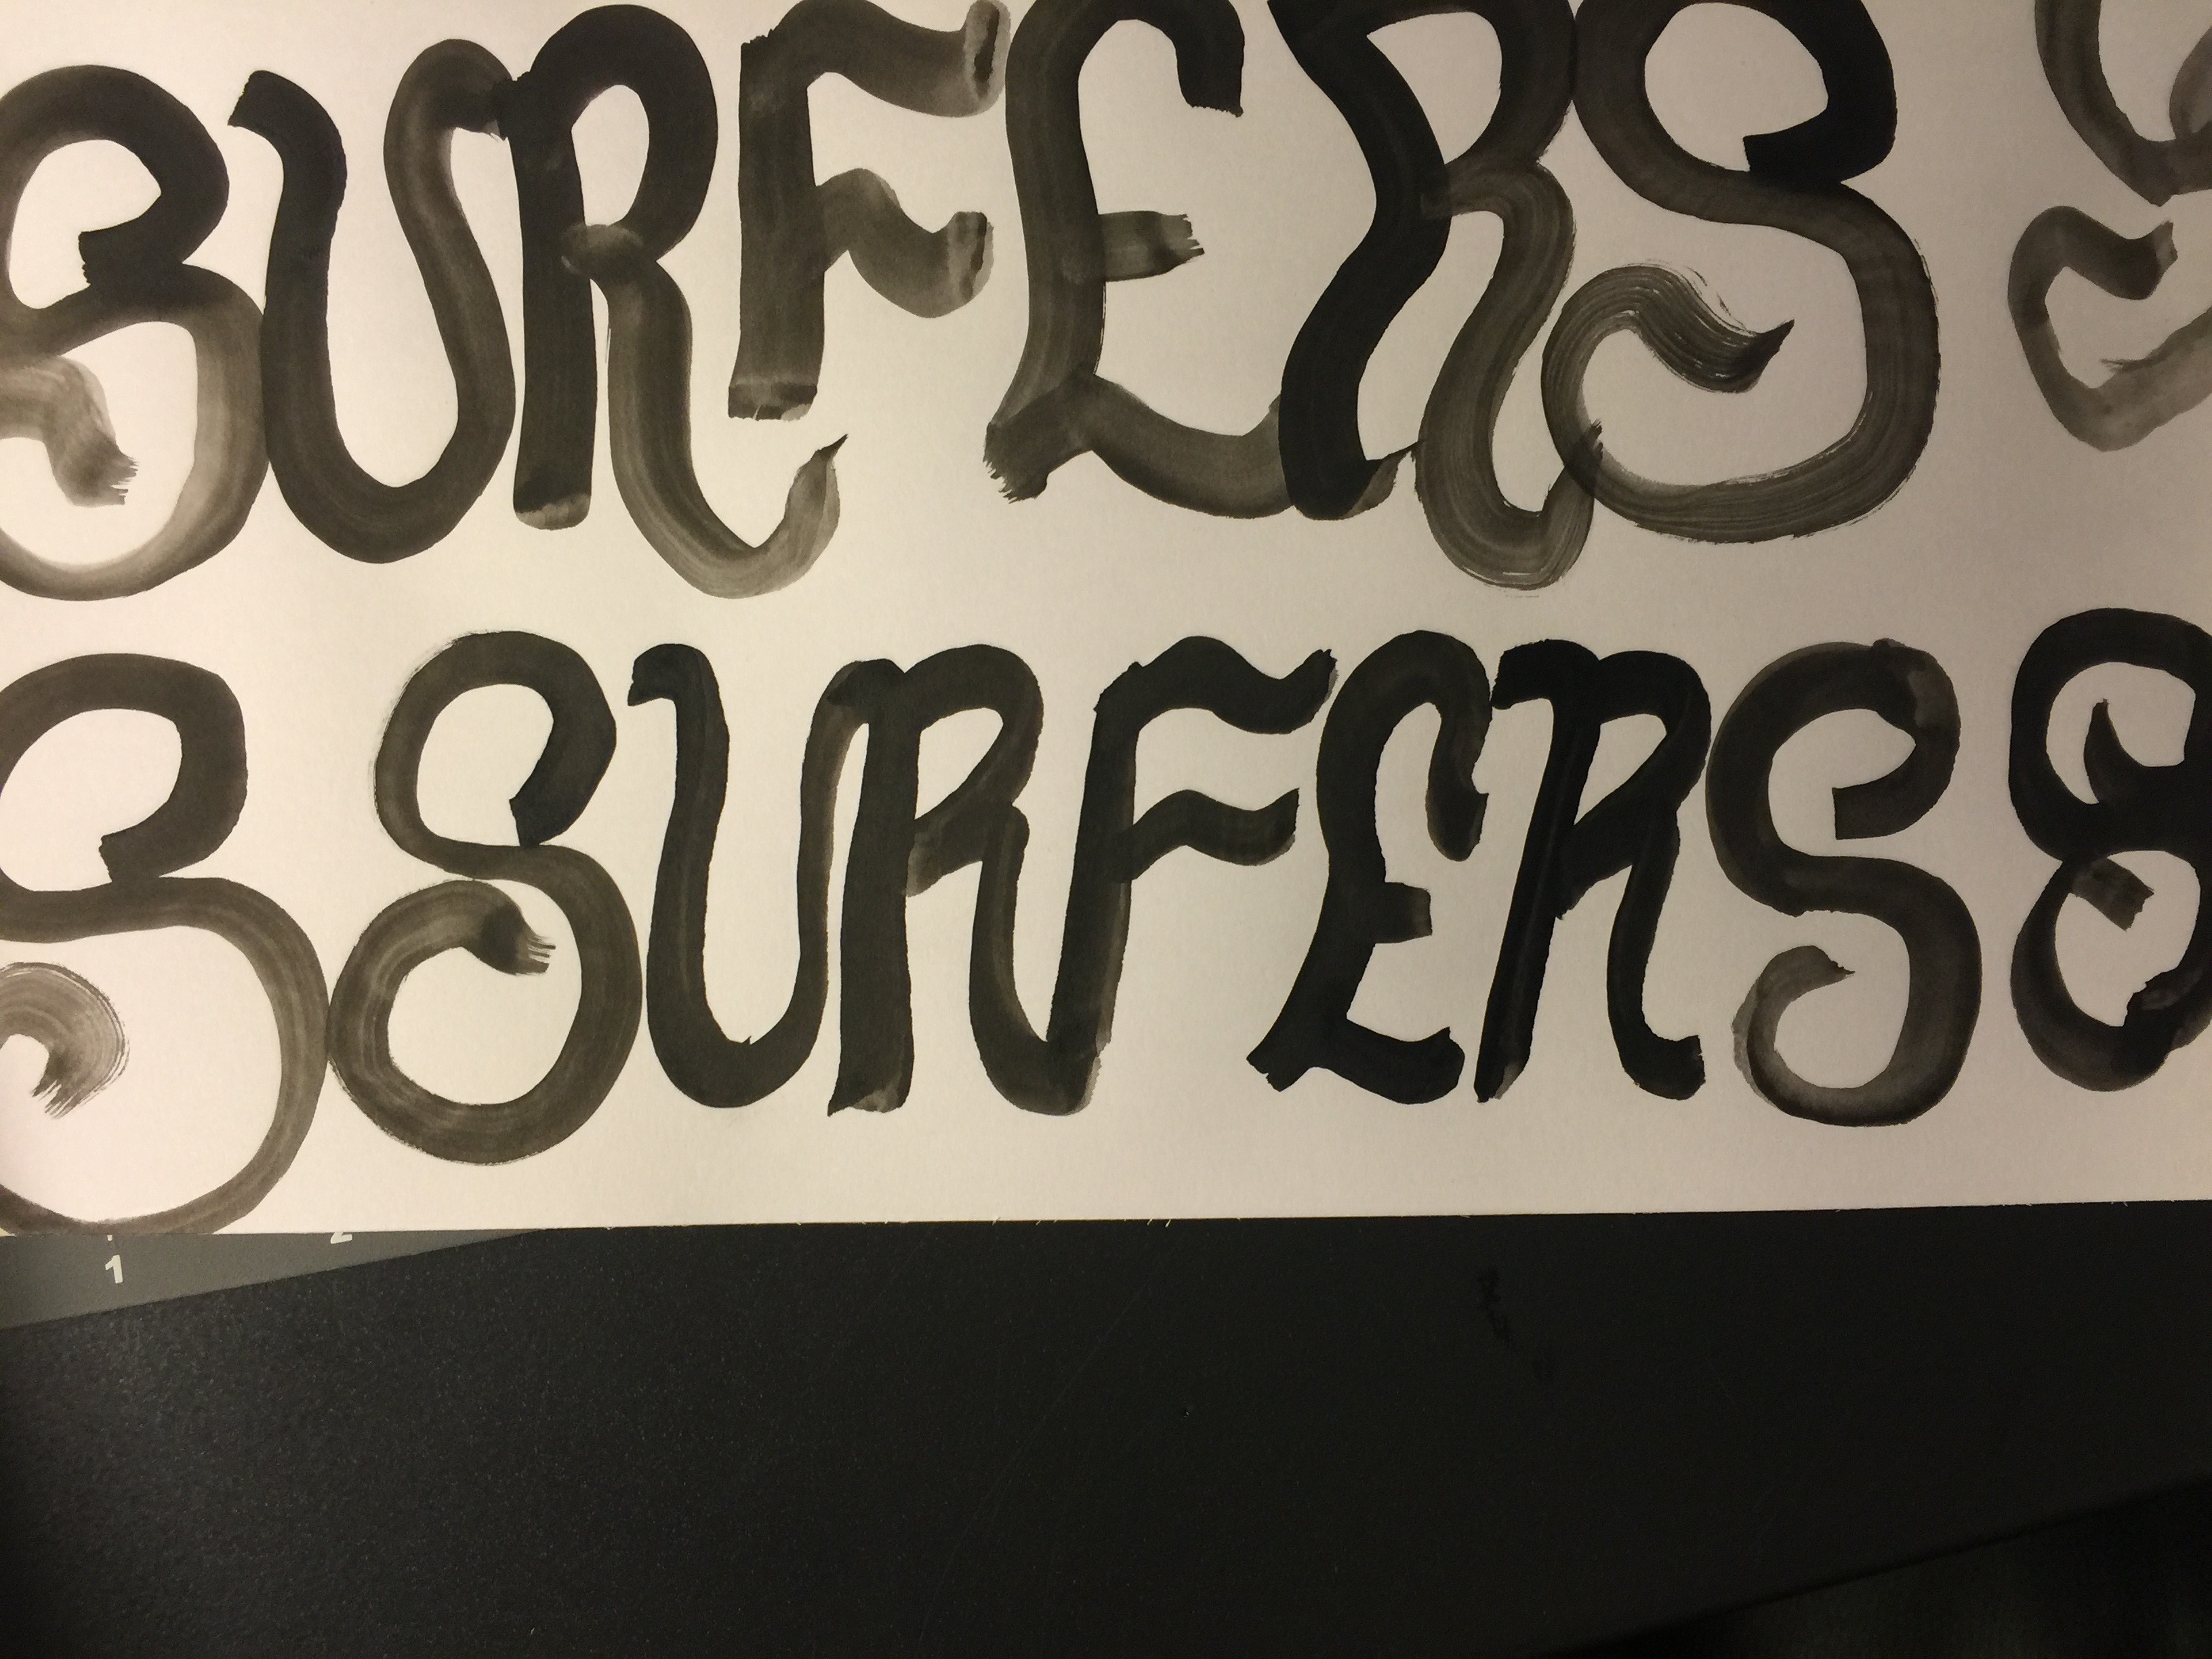 SURFERS S
S SURFERS 8
1 2